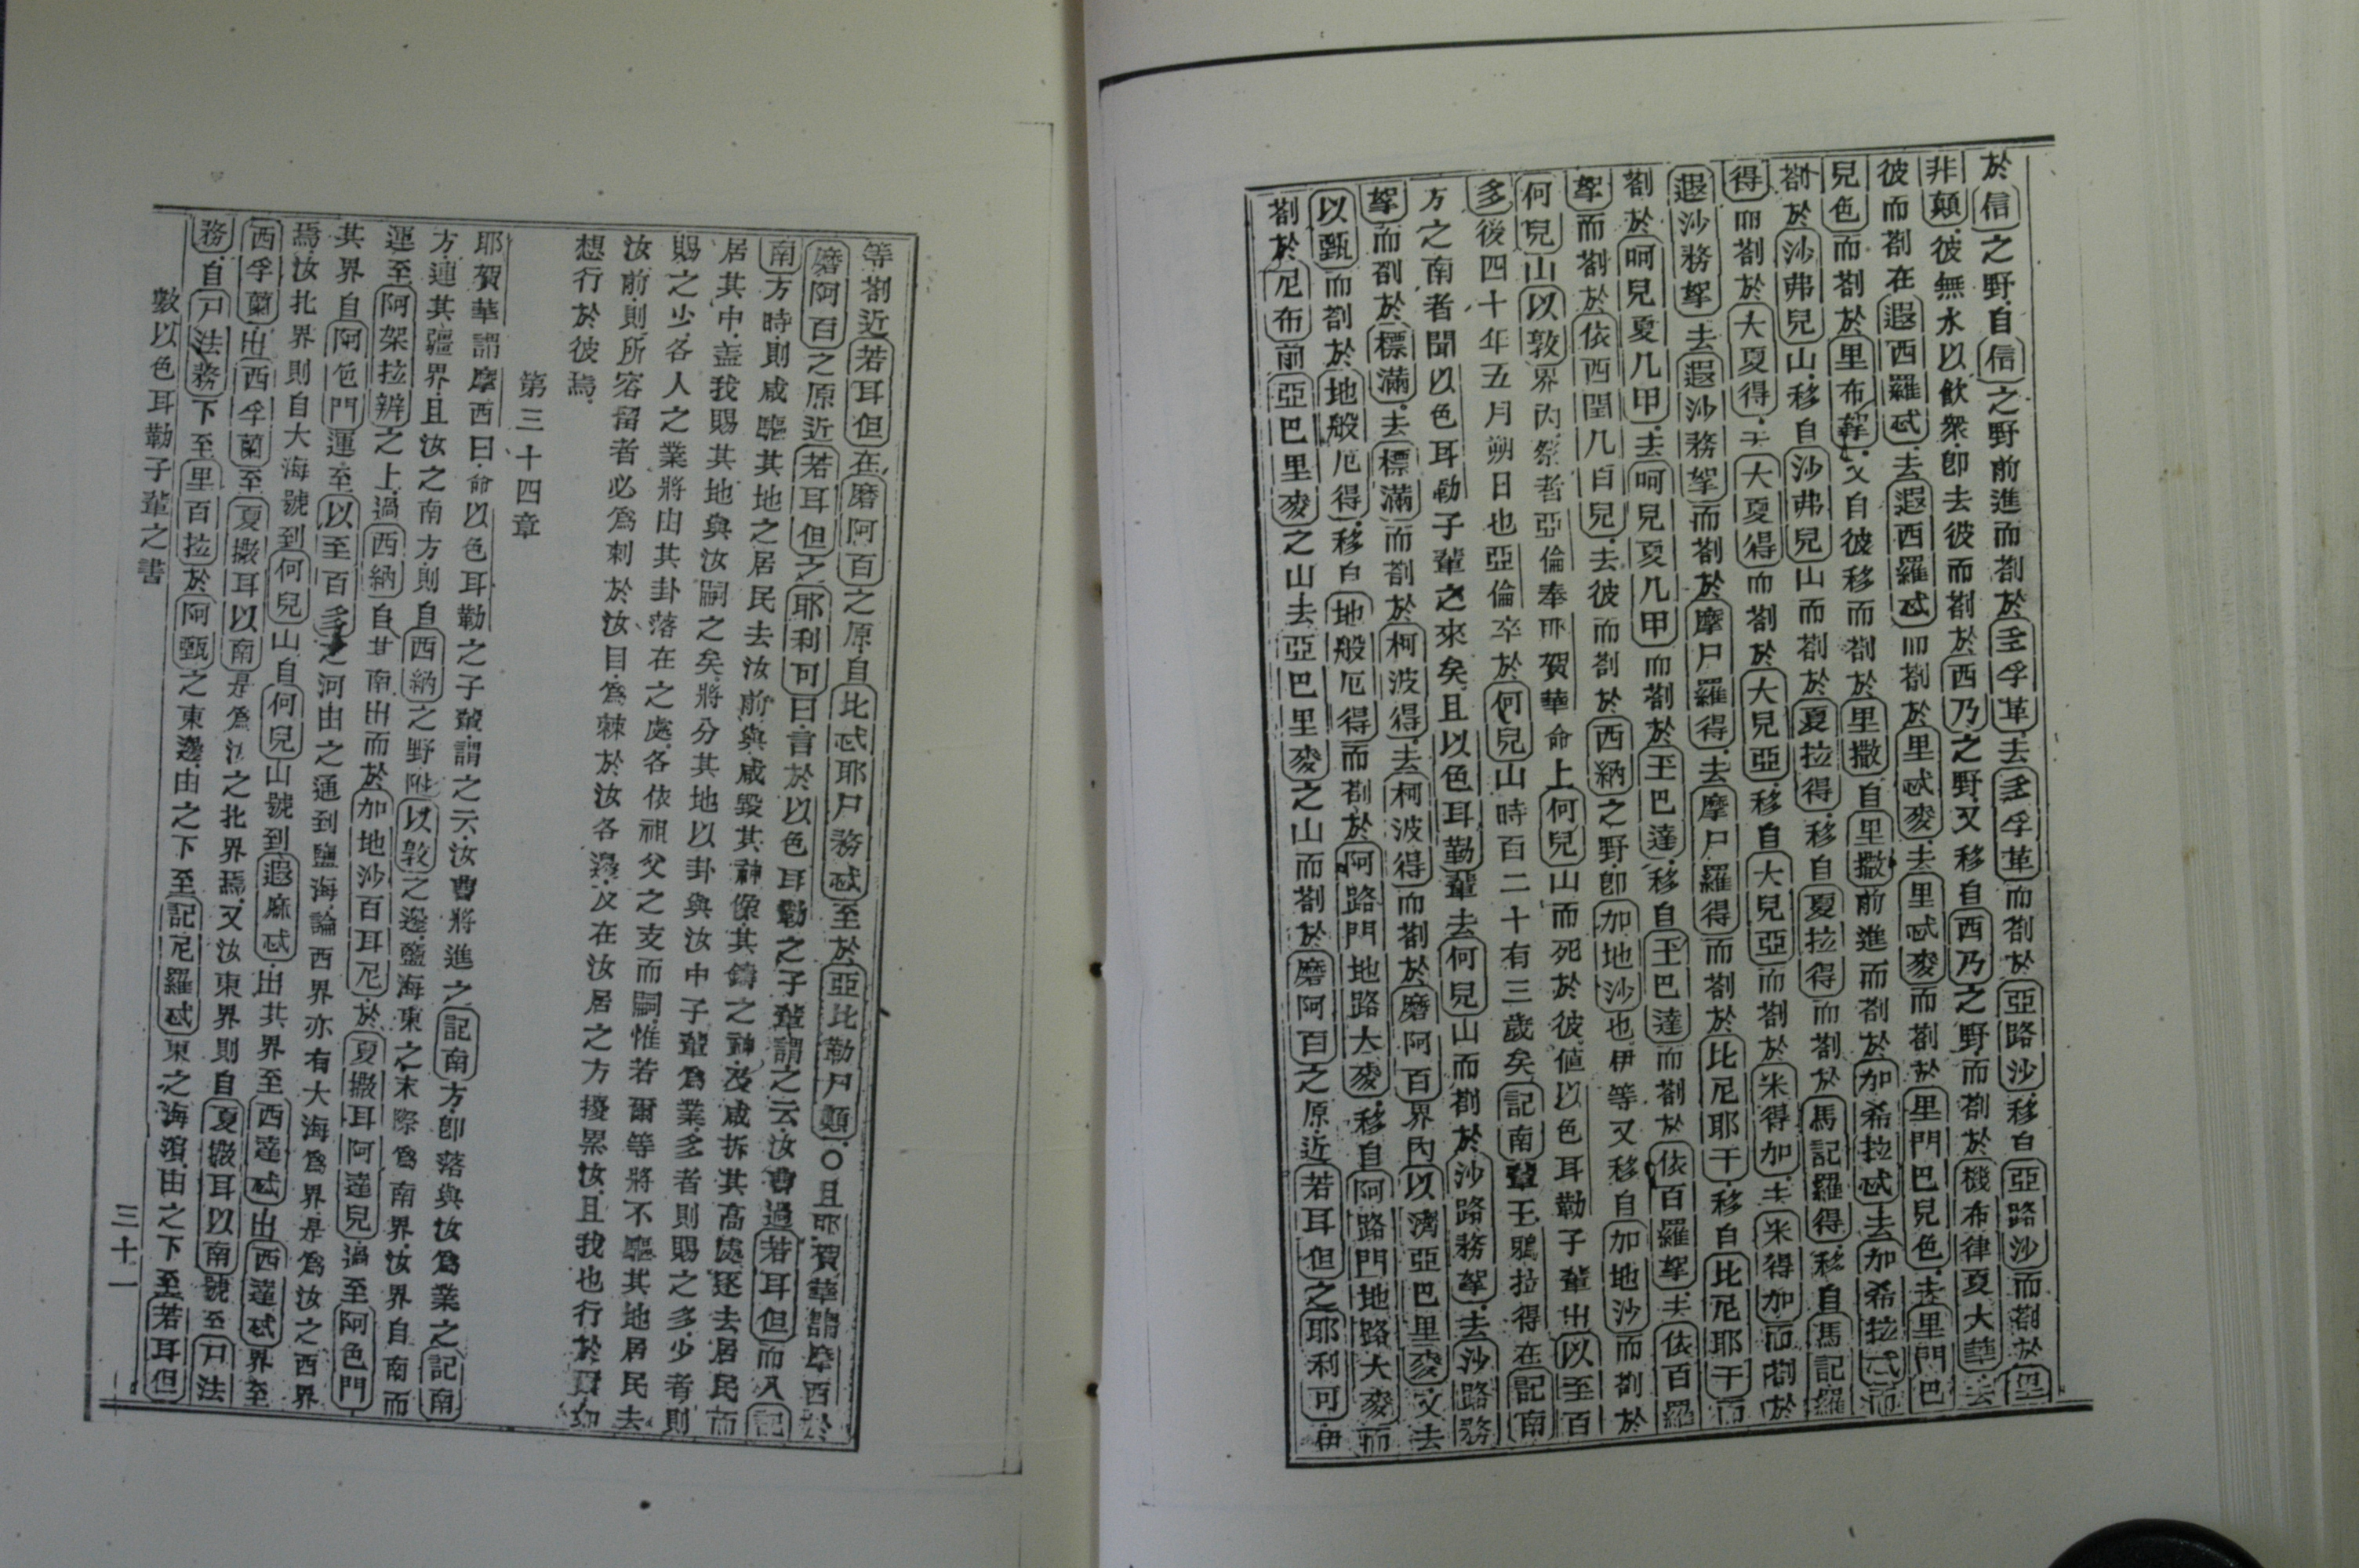 於信之野自信之野前進而劄於
非顛彼無水以飲衆即去彼而劄於西乃之野又移自西乃之野而劄於機布律夏大
彼而劄在遐西羅忒去遐西羅忒而劄於里忒麥去里忒麥而劄於里門巴兒色去里門巴
兒色而劄於里布又自彼移而劄於里撒自里撒前進而劄於加希拉忒去加希拉忒而
劄於沙弗兒山移自沙弗兒山而劄於夏拉得移自夏拉得而劄於馬記羅得移自馬記羅
得而劄於大夏得去大夏得而劄於大兒亞移自大兒亞而劄於米得加去米得加而劄於
遐沙務拏去遐沙務拏而劄於摩尸羅得去摩尸羅得而劄於比尼耶干移自比尼耶干而
劄於呵兒夏几甲去呵兒夏几甲而劄於王巴達移自王巴達而劄於依百羅拏去依百羅
拏而劄於依西閏几百兒去彼而劄於西納之野即加地沙也伊等又移自加地沙而劄於
何兒山以敦界內祭者亞倫奉耶賀華命上何兒山而死於彼値以色耳勒子輩出以至百
多後四十年五月朔日也亞倫卒於何兒山時百二十有三歲矣記南輩王鴉拉得在記南
方之南者聞以色耳勒子輩之來矣且以色耳勒輩去何兒山而劄於沙路務拏去沙路務
拏而劄於標滿去標滿而劄於柯波得去柯波得而劄於磨阿百界內以濟亞巴里麥又去
以甄而劄於地般厄得移自地般厄得而劄於阿路門地路大麥移自阿路門地路大麥而
劄於尼布前亞巴里麥之山去亞巴里麥之山而劄於磨阿百之原近若耳但之耶利可伊
等劄近若耳但在磨阿百之原自比忒耶尸務忒至於亞比勒尸顛○且耶賀華謂摩西於
磨阿百之原近若耳但之耶利可曰言於以色耳勒之子輩謂之云汝曹過若耳但而入記
南方時則咸驅其地之居民去汝前與咸毀其神像其鑄之神及咸拆其高處逐去居民而
居其中盖我賜其地與汝嗣之矣將分其地以卦與汝中子輩爲業多者則賜之多少者則
賜之少各人之業將由其卦落在之處各依祖父之支而嗣惟若爾等將不驅其地居民去
汝前則所容留者必爲刺於汝目爲棘於汝各邊及在汝居之方擾累汝且我也行於如
想行於彼焉
第三十四章
耶賀華謂摩西曰命以色耳勒之子輩謂之云汝曹將進之記南方即落與汝爲業之記南
方連其疆界且汝之南方則自西納之野附以敦之邊鹽海東之末際爲南界汝界自南而
運至阿架拉辨之上過西納自其南出而於加地沙百耳尼於夏撒耳阿達兒過至阿色門
其界自阿色門運至以至百多之河由之通到鹽海論西界亦有大海爲界是爲汝之西界
焉汝北界則自大海號到何兒山自何兒山號到遐麻忒出其界至西達忒出西達忒界至
西孚蘭出西孚蘭至夏撒耳以南是爲汝之北界焉又汝東界則自夏撒耳以南號至尸法
務自尸法務下至里百拉於阿甄之東邊由之下至記尼羅忒東之海濵由之下至若耳但
數以色耳勒子輩之書
三十一